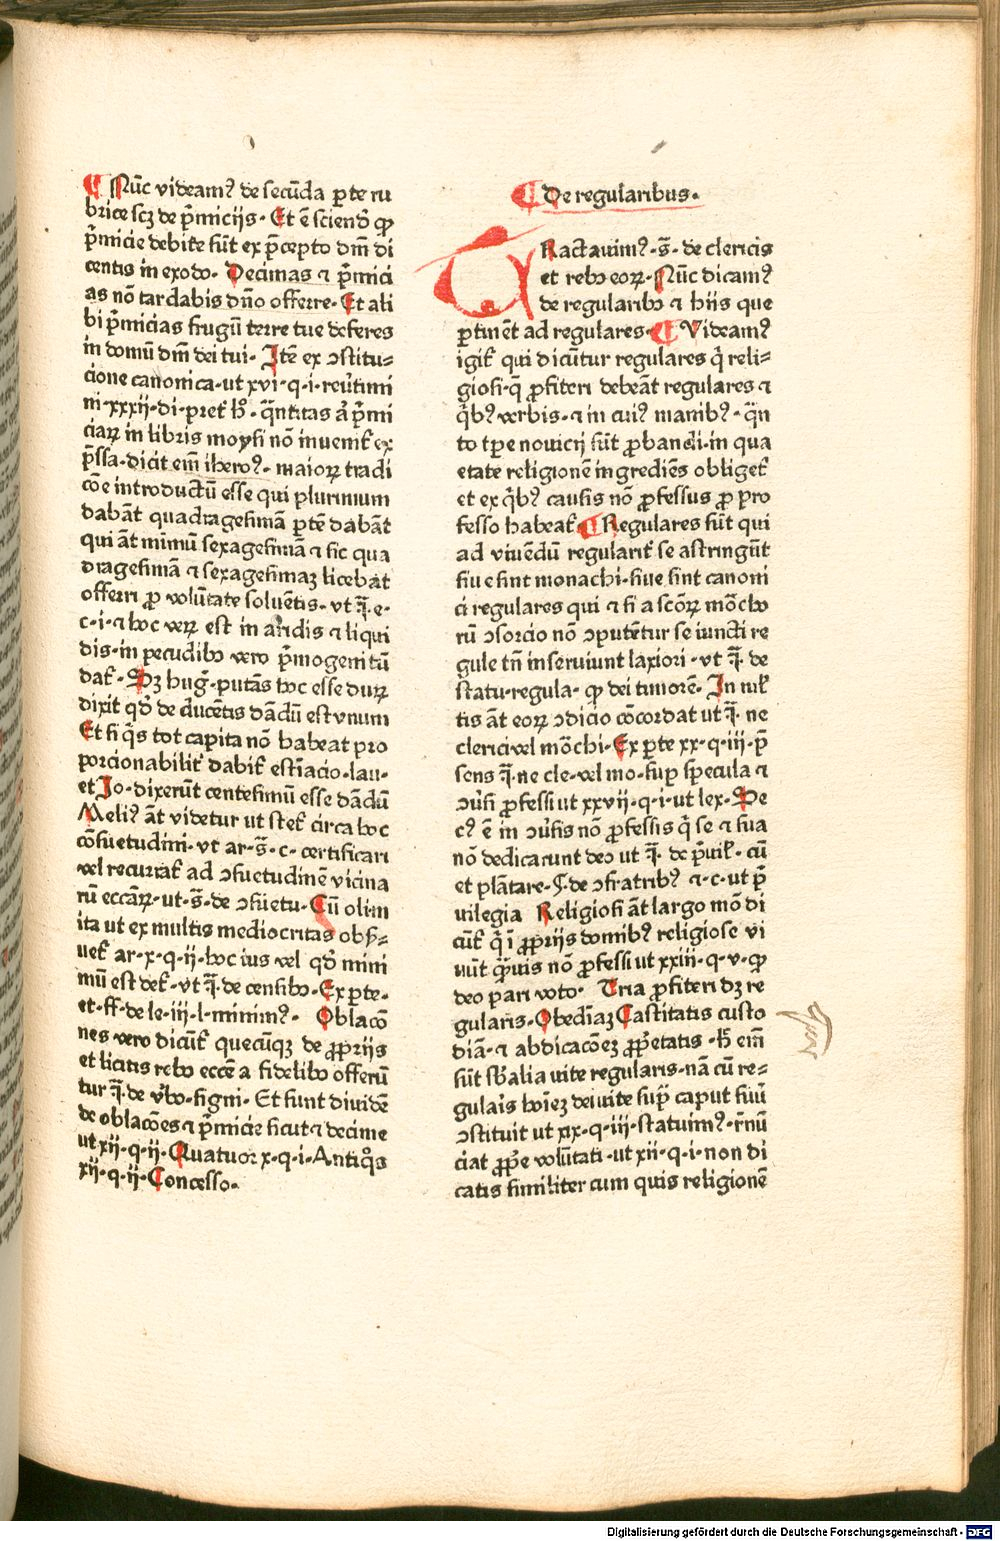 ¶ Nūc videamꝰ de secūda ꝑte ru
brice scꝫ de p̄micijs. Et ē sciendō ꝙ
p̄micie debite sūt ex p̄cepto dm̄ di
centis in exodo. Decimas ⁊ p̄mici
as nō tardabis dn̄o offerre. Et ali
bi p̄micias frugū terre tue deferes
in domū dm̄ dei tui. Itē ex ↄstitu⸗
cione canonica. ut xvi. q. i. reūtimi
ni. xxxij. di. pret̄ h̄. q̄ntitas āt p̄mi
ciaꝝ in libris moysi nō invenit̄ ex
p̄ssa. dicit em̄ iheroꝰ. maioꝝ tradi
cōe introductū esse qui plurimum
dabāt quadragesimā ꝑtē dabāt
qui āt mimū sexagesimā ⁊ sic qua
dragesimā ⁊ sexagesimaꝫ licebat
offerri ꝓ volūtate solvētis. vt q̄. e.
c. i. ⁊ hoc veꝝ est in aridis ⁊ liqui
dis. in pecudibꝰ vero p̄mogenitū
dat̄. Sꝫ hug̃. putās hoc esse duꝝ
dixit qd̓ de ducētis dādū est vnum
Et si q̇s tot capita nō habeat pro
porcionabilit̄ dabit̄ estīacio. lau.
et Jo. dixerūt centesimū esse dādū
Meliꝰ āt videtur ut stet̄ circa hoc
cōsuetudini. vt ar. s̄. c. certificari
vel recurrat̄ ad ↄsuetudinē vicina
rū eccāꝝ. ut. s̄. de ↄsuetu. Cū olim
ita ut ex multis mediocritas obs̄⸗
uet̄ ar. x. q. ij. hoc ius vel qd̓ mini
mū est det̄. vt q̄. de censibꝰ. Ex ꝑte.
et. ff. de le. iij. l. minimꝰ. Oblacō
nes vero dicūt̄ quecūqꝫ de ꝓprijs
et licitis rebꝰ eccē a fidelibꝰ offerū
tur q̄. de v̓bo. signi. Et sunt dividē
de oblacōes ⁊ p̄micie sicut ⁊ decime
ut xij. q. ij. Quatuor x. q. i. Antiq̇s
xij. q. ij. Concesso.
¶ De regularibus.
Ractavimꝰ. s̄. de clericis
et rebꝰ eoꝝ. Nūc dicamꝰ
de regularibꝰ ⁊ hijs que
ꝑtinēt ad regulares. ¶ Videamꝰ
igit̄ qui dicūtur regulares q̇ reli⸗
giosi. q̄ ꝓfiteri debeāt regulares ⁊
q̇bꝰ verbis. ⁊ in cuiꝰ manibꝰ. q̄n
to tꝑe novicij sūt ꝓbandi. in qua
etate religionē ingrediēs obliget̄
et ex q̇bꝰ causis nō ꝓfessus ꝓ pro
fesso habeat̄. ¶ Regulares sūt qui
ad viuendū regularit̄ se astringūt
siue sint monachi. siue sint canoni
ci regulares qui ⁊ si a scōꝝ mōcho
rū ↄsorcio nō ↄputētur se iuncti re
gule tn̄ inserviunt laxiori. vt q̄. de
statu. regula. ꝙ dei timorē. In mĺ
tis āt eoꝝ ↄdicio cōcordat ut q̄. ne
clerici vel mōchi. Ex ꝑte xx. q. iij. p̄
sens q̄. ne cle. vel mo. suꝑ specula ⁊
ↄu̓si ꝓfessi ut xxvij. q. i. ut lex. Se
cꝰ ē in ↄu̓sis nō ꝓfessis q̇ se ⁊ sua
nō dedicarunt deo ut q̄. de p̄uil̄. cū
et plātare. §. de ↄfratribꝰ ⁊. c. ut p̄
uilegia Religiosi āt largo mō di
cūt̄ q̇ ī ꝓprijs domibꝰ religiose vi
uūt q̄uis nō ꝓfessi ut xxiij. q. v. ꝙ
deo pari voto. Tria ꝓfiteri dꝫ re
gularis. Obediāꝫ Castitatis custo
diā. ⁊ abdicacōeꝫ ꝓp̄etatis. h̄ em̄
sūt sb̄alia vite regularis. nā cū re⸗
gularis hoīeꝫ dei vite suꝑ caput suū
ↄstituit ut xix. q. iij. statuimꝰ. r̄nū
ciat ꝓp̄e volūtati. ut xij. q. i. non di
catis similiter cum quis religionē
Digitalisierung gefördert durch die Deutsche Forschungsgemeinschaft - DFG